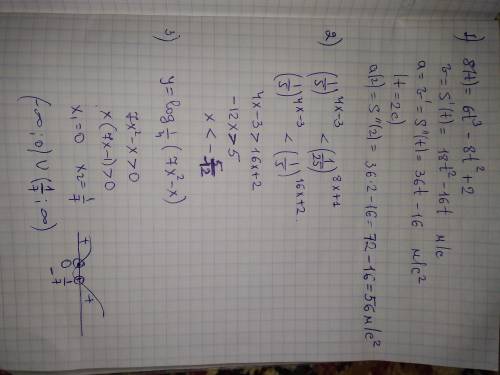 1) S(t) = 6t³ - 8t² + 2
v = S'(t) = 18t² - 16t м/с
a = v' = S''(t) = 36t - 16 м/с²
(t = 2c)
a(2) = S''(2) = 36·2 - 16 = 72 - 16 = 56 м/с²
2) (1/5)^(4x-3) < (1/25)^(8x+1)
(1/5)^(4x-3) < (1/5)^(16x+2)
4x-3 > 16x+2
-12x > 5
x < -5/12
3) y = log_(1/4) (7x² - x)
7x² - x > 0
x(7x-1) > 0
x₁ = 0 x₂ = 1/7
+ 0 - 1/7 +
(-∞; 0) ∪ (1/7; ∞)